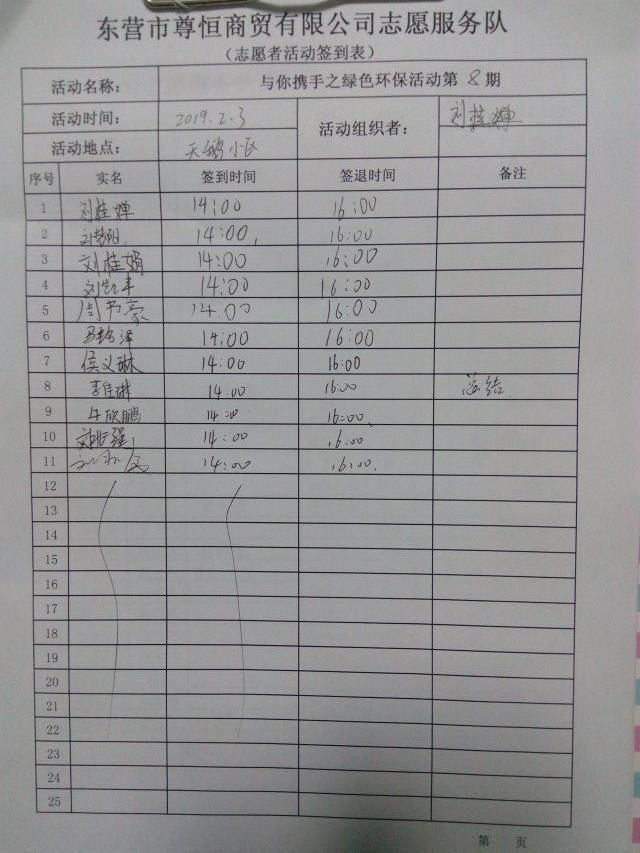 东营市尊恒商贸有限公司志愿服务队
（志愿者活动签到表）
活动名称： 与你携手之绿色环保活动第 8 期
活动时间： 2019.2.3 活动组织者： 刘桂婵
活动地点： 天鹅小区
序号 实名 签到时间 签退时间 备注
1 刘桂婵 14:00 16:00
2 14:00 16:00
3 刘桂娟 14:00 16:00
4 14:00 16:00
5 周书豪 14:00 16:00
6 14:00 16:00
7 侯义琳 14:00 16:00
8 李佳琳 14:00 16:00 总结
9 牛欣鹏 14:00 16:00
10 14:00 16:00
11 14:00 16:00
12
13
14
15
16
17
18
19
20
21
22
23
24
25
第 页